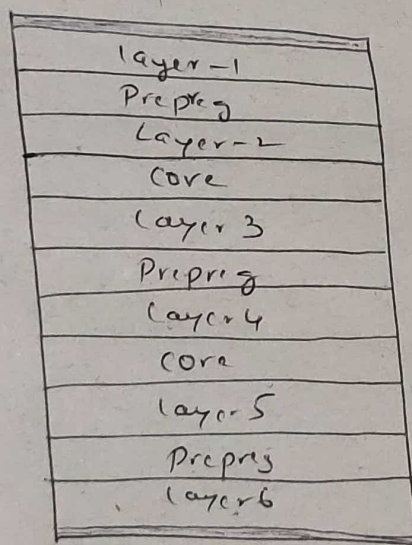 layer-1
Prepreg
Layer-2
Core
Layer 3
Prepreg
Layer 4
Core
layer 5
Prepreg
layer 6